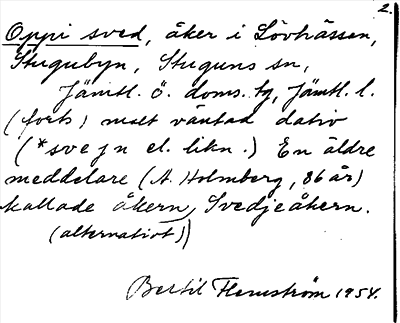 2.
Oppi sved, åker i Lövhåssen,
Stugubyn, Stuguns sn,
Jämtl. ö. doms. tg, Jämtl. l.
(forts) motsv. väntad dativ
(*svejn el. likn.) En äldre
meddelare (A. Holmberg, 86 år)
kallade åkern, Svedjeåkern.
(alternativt)
Bertil Flemström 1954.